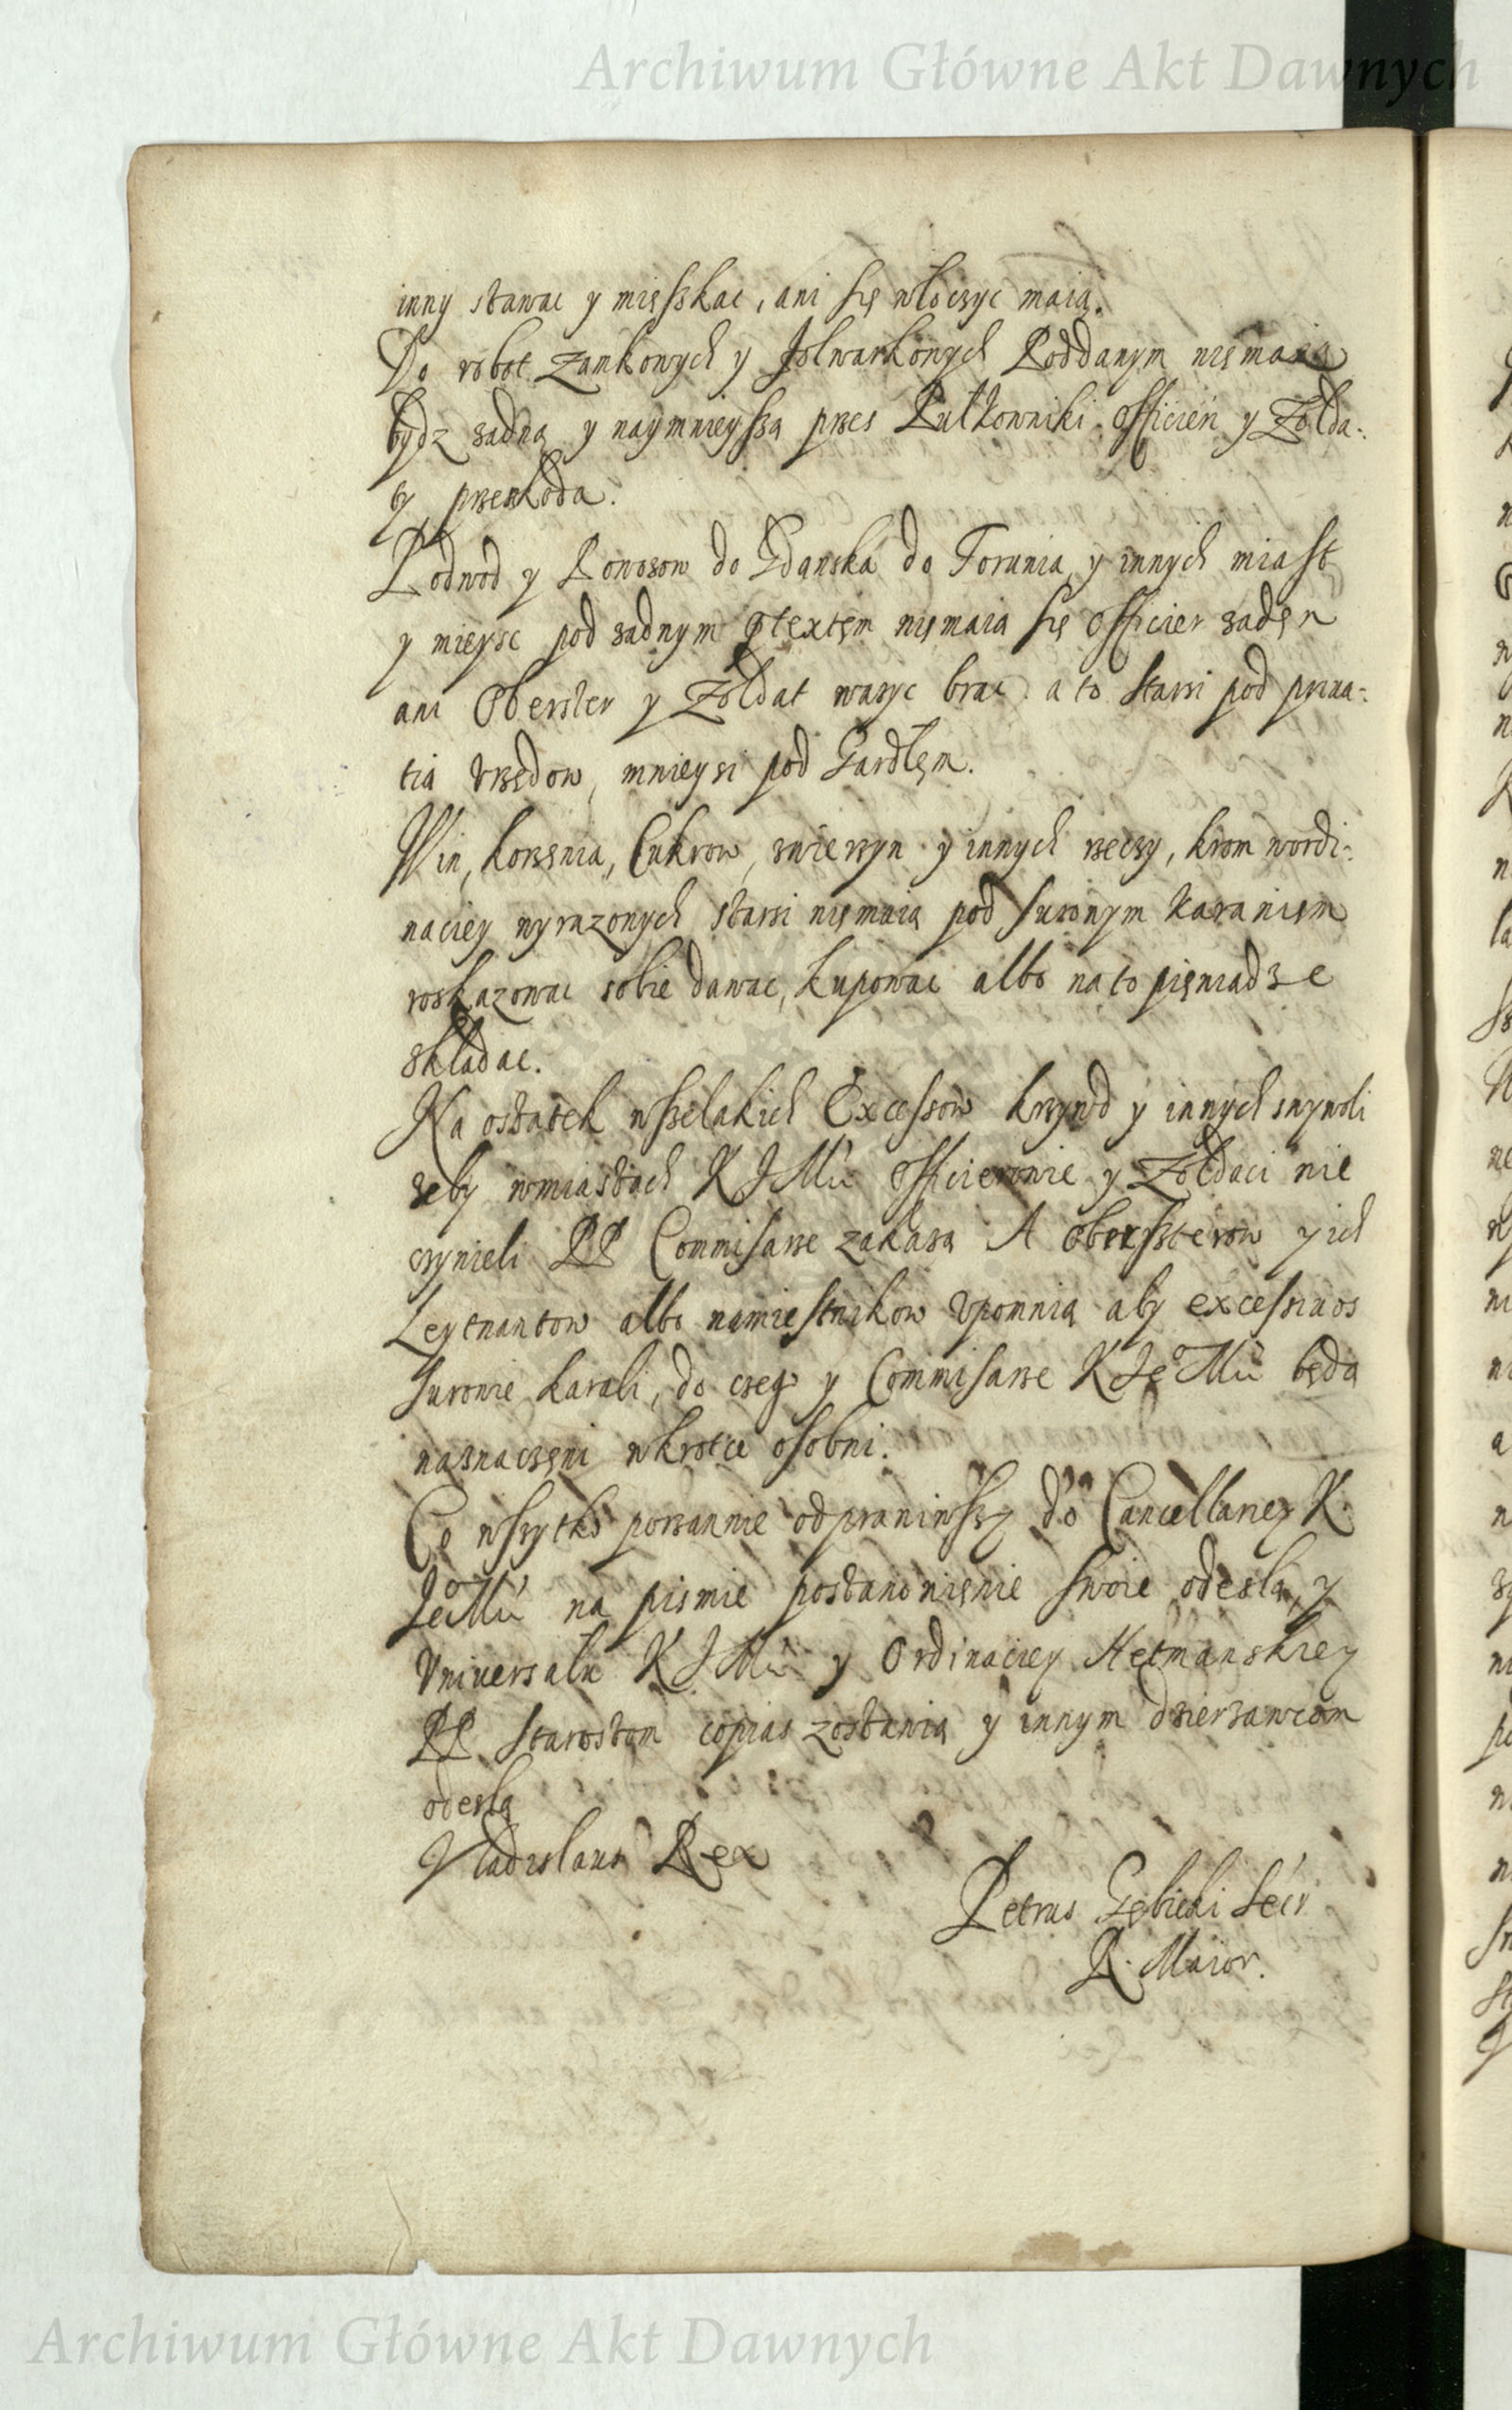 Archiwum Główne Akt Dawnych
inny stawac y mięszkac, ani się włoczyc maią.
Do robot Zamkowych y folwarkowych Poddanym niemaią
bydz zadna y naymnieysza przes Pułkowniki officieri y Zołda-
y przeskoda.
Podwod y Powozow do Gdanska do Torunia y innych miast
y mieysc pod zadnym ptextęm nięmaia się officier zadęn
ani Oberszter y Zołdat wazyc brac. a to starsi pod priua-
tią Vrzędow, mnieysi pod Gardłęm.
Win, korzęnia, Cukrow, zwierzyn y innych rzeczy, krom wordi-
naciey wyrazonych starsi nięmaią pod surowym karanięm
roskazowac sobie dawac, kupowac albo na to pięniadze
składac.
Na ostatek wszelakich Excessow krzywd y innych swywoli
zeby wmiastach KJMci officierowie y Zołdaci nie
czynieli PP Commisarze zakazą A Oberszterow y ich
Leytnantow albo namiestnikow Vpomnią aby excessiuos
surowie karali, do czego y Commisarze KJeMci będą
naznaczęni wkrotce osobni.
Co wszytko porzannie odprawiwszy do Cancellariey K.
JeoMci na pismie postanowięnie swoie odeslą, y
Vniuersału KJMci y Ordinaciey Hetmanskiey
PP Starostom copias zostawią y innym dzierzawcom
odeslą
Vladislaus Rex
Petrus Gębicki Secr
R. Maior.
Archiwum Główne Akt Dawnych